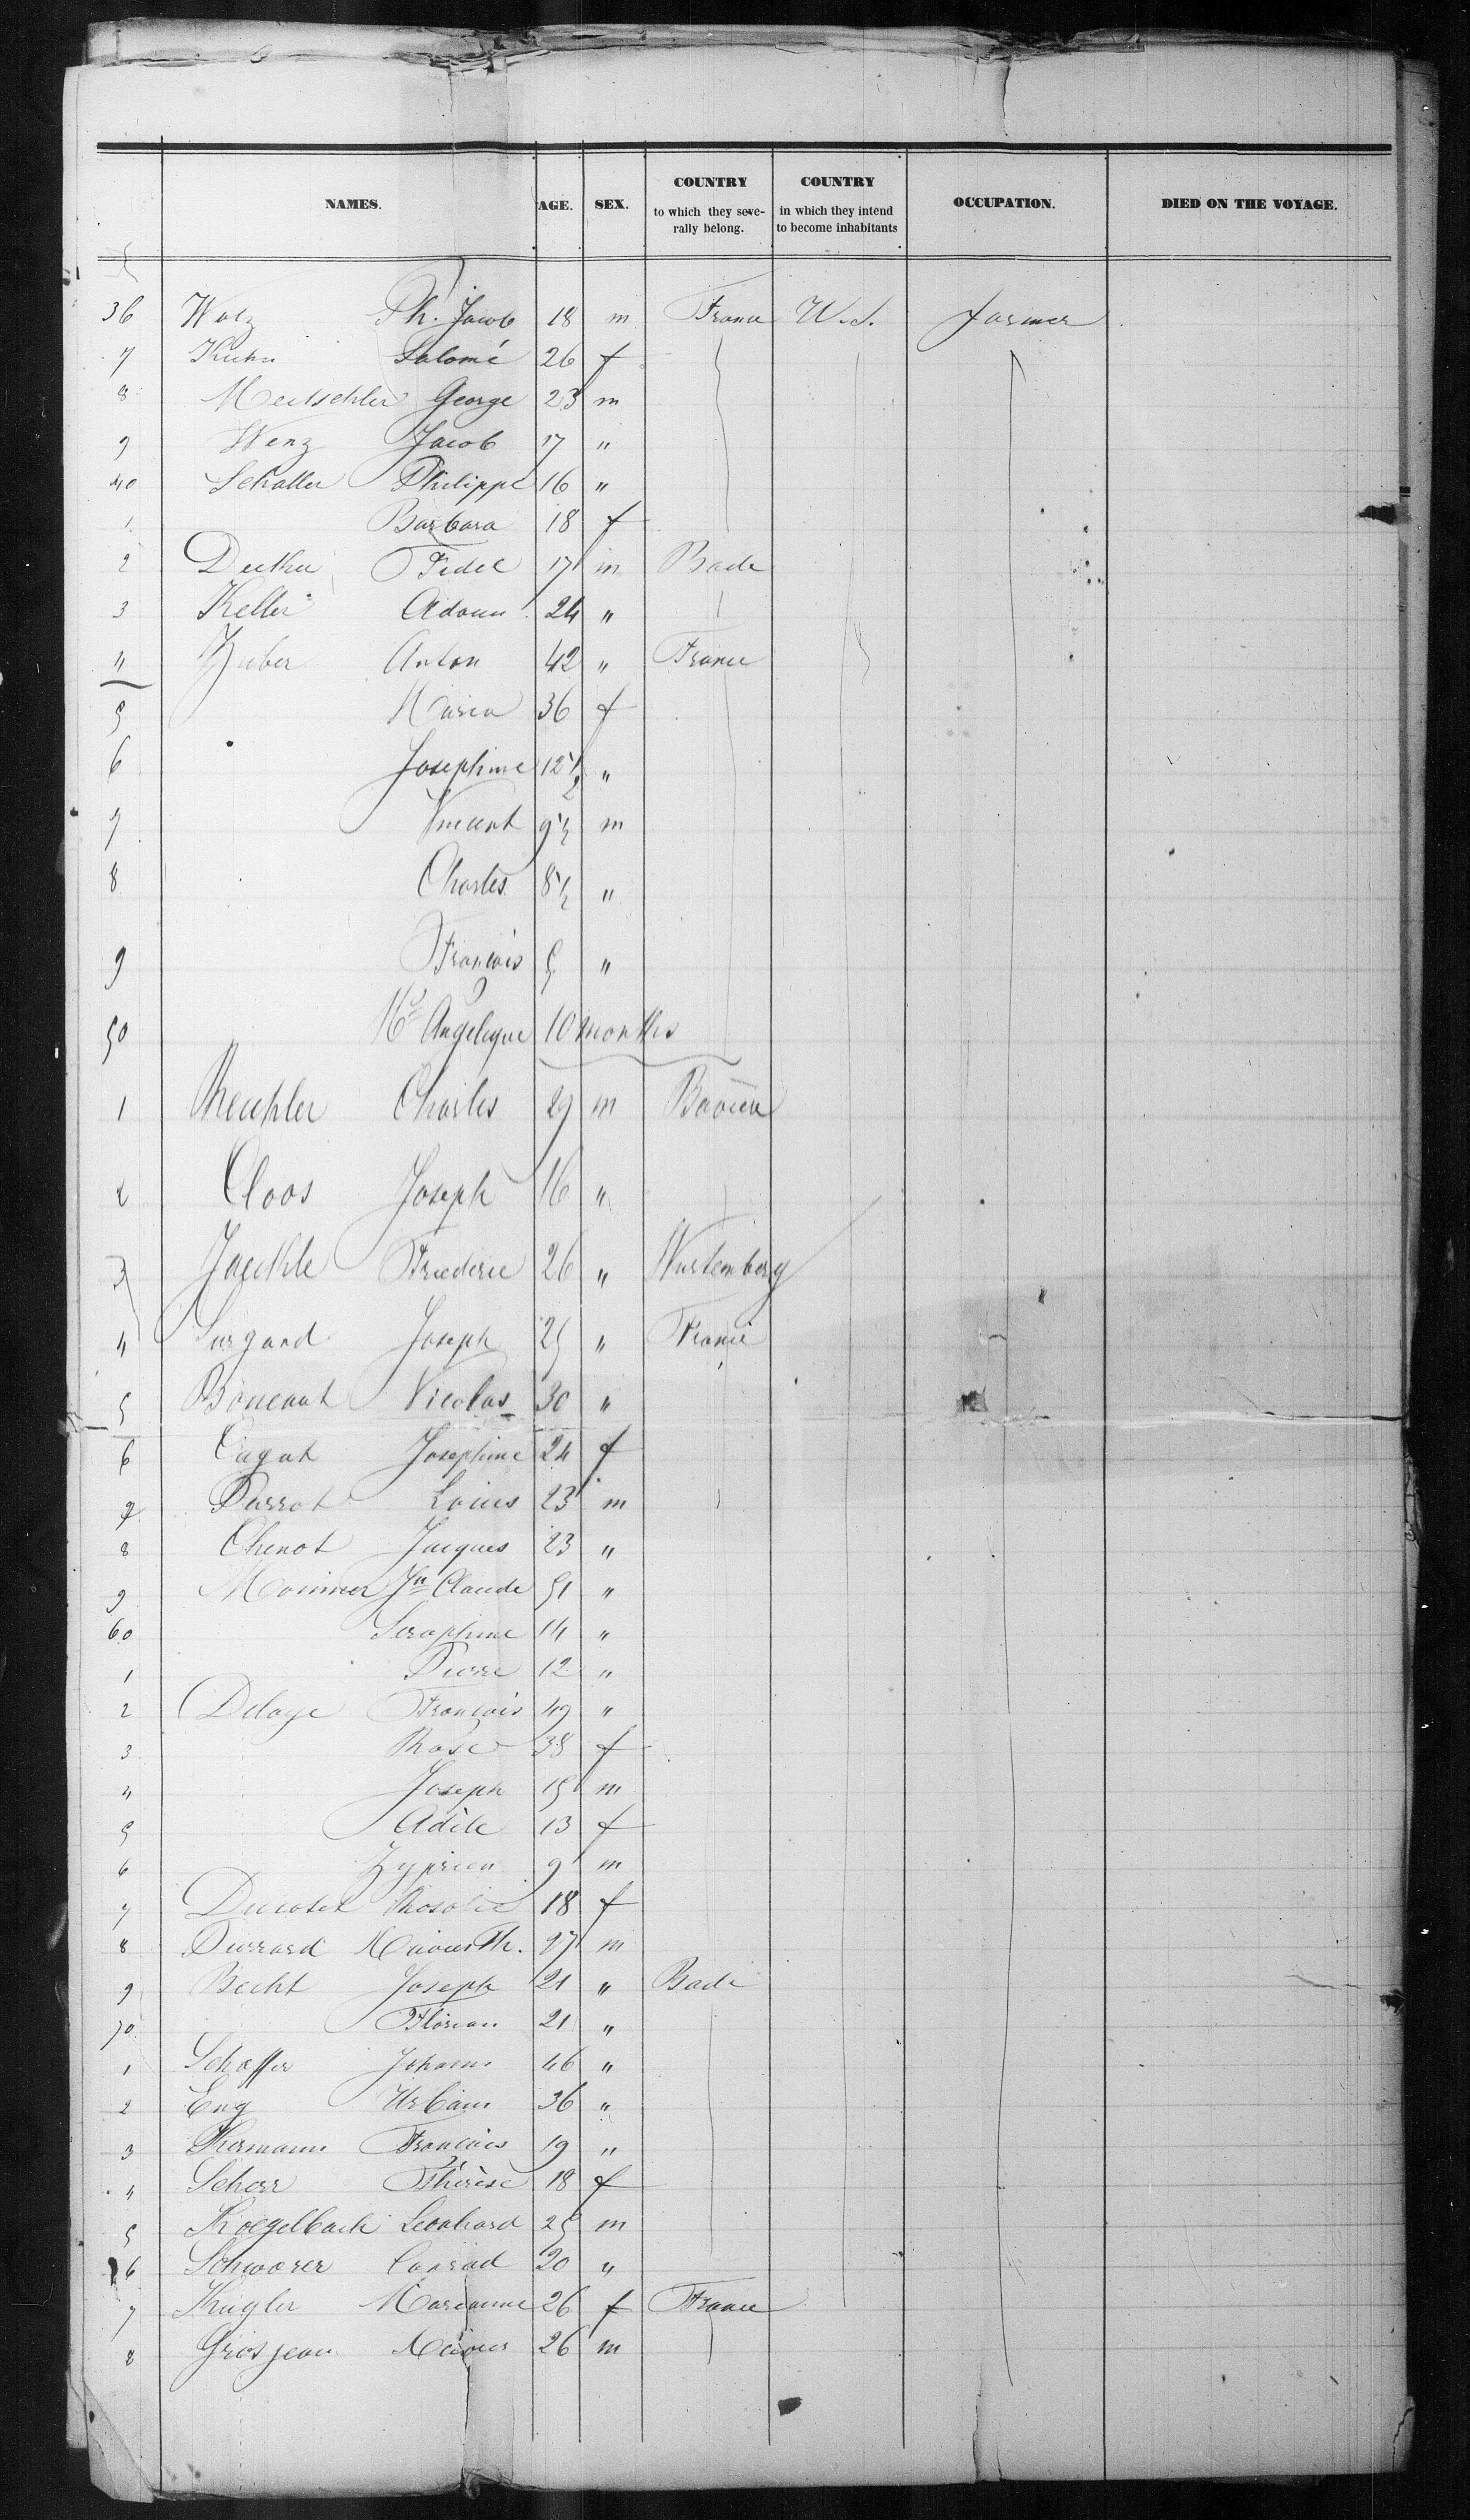 NAMES. AGE. SEX. COUNTRY to which they seve-rally belong. COUNTRY in which they intend to become inhabitants OCCUPATION. DIED ON THE VOYAGE.
36 Walz Ph. Jacob 18 m France U.S. farmer
7 Kuhn Salomé 26 f
8 George 23 m
9 Wenz Jacob 17 "
40 Schaller Philippe 16 "
1 Barbara 18 f
2 Fidel 17 m Bade
3 Keller Adam 24 "
4 Zuber Anton 42 " France
5 Maria 36 f
6 Josephine 12 1/2 "
7 Vincent 9 1/2 m
8 Charles 8 1/2 "
9 François 5 "
50 Angelique 10 months
1 Charles 29 m Bavien
2 Cloos Joseph 16 "
3 Jaeckle Frederic 26 " Wurtemberg
4 Surgand Joseph 25 " France
5 Nicolas 30 "
6 Cagat Josephine 24 f
7 Parrot Louis 23 m
8 Chenot Jacques 23 "
9 Jn Claude 51 "
60 Seraphine 14 "
1 Pierre 12 "
2 Delage François 49 "
3 Rose 38 f
4 Joseph 15 m
5 Adèle 13 f
6 Zyprien 9 m
7 Rosalie 18 f
8 27 m
9 Becht Joseph 21 " Bade
70 Florian 21 "
1 Schaffer Johann 46 "
2 Eng Urbain 36 "
3 Hermann François 19 "
4 Scherr Thérèse 18 f
5 Koegelbach Leonhard 25 m
6 Schwarer Conrad 20 "
7 Kugler Marianne 26 f France
8 Grosjean Xavier 26 m